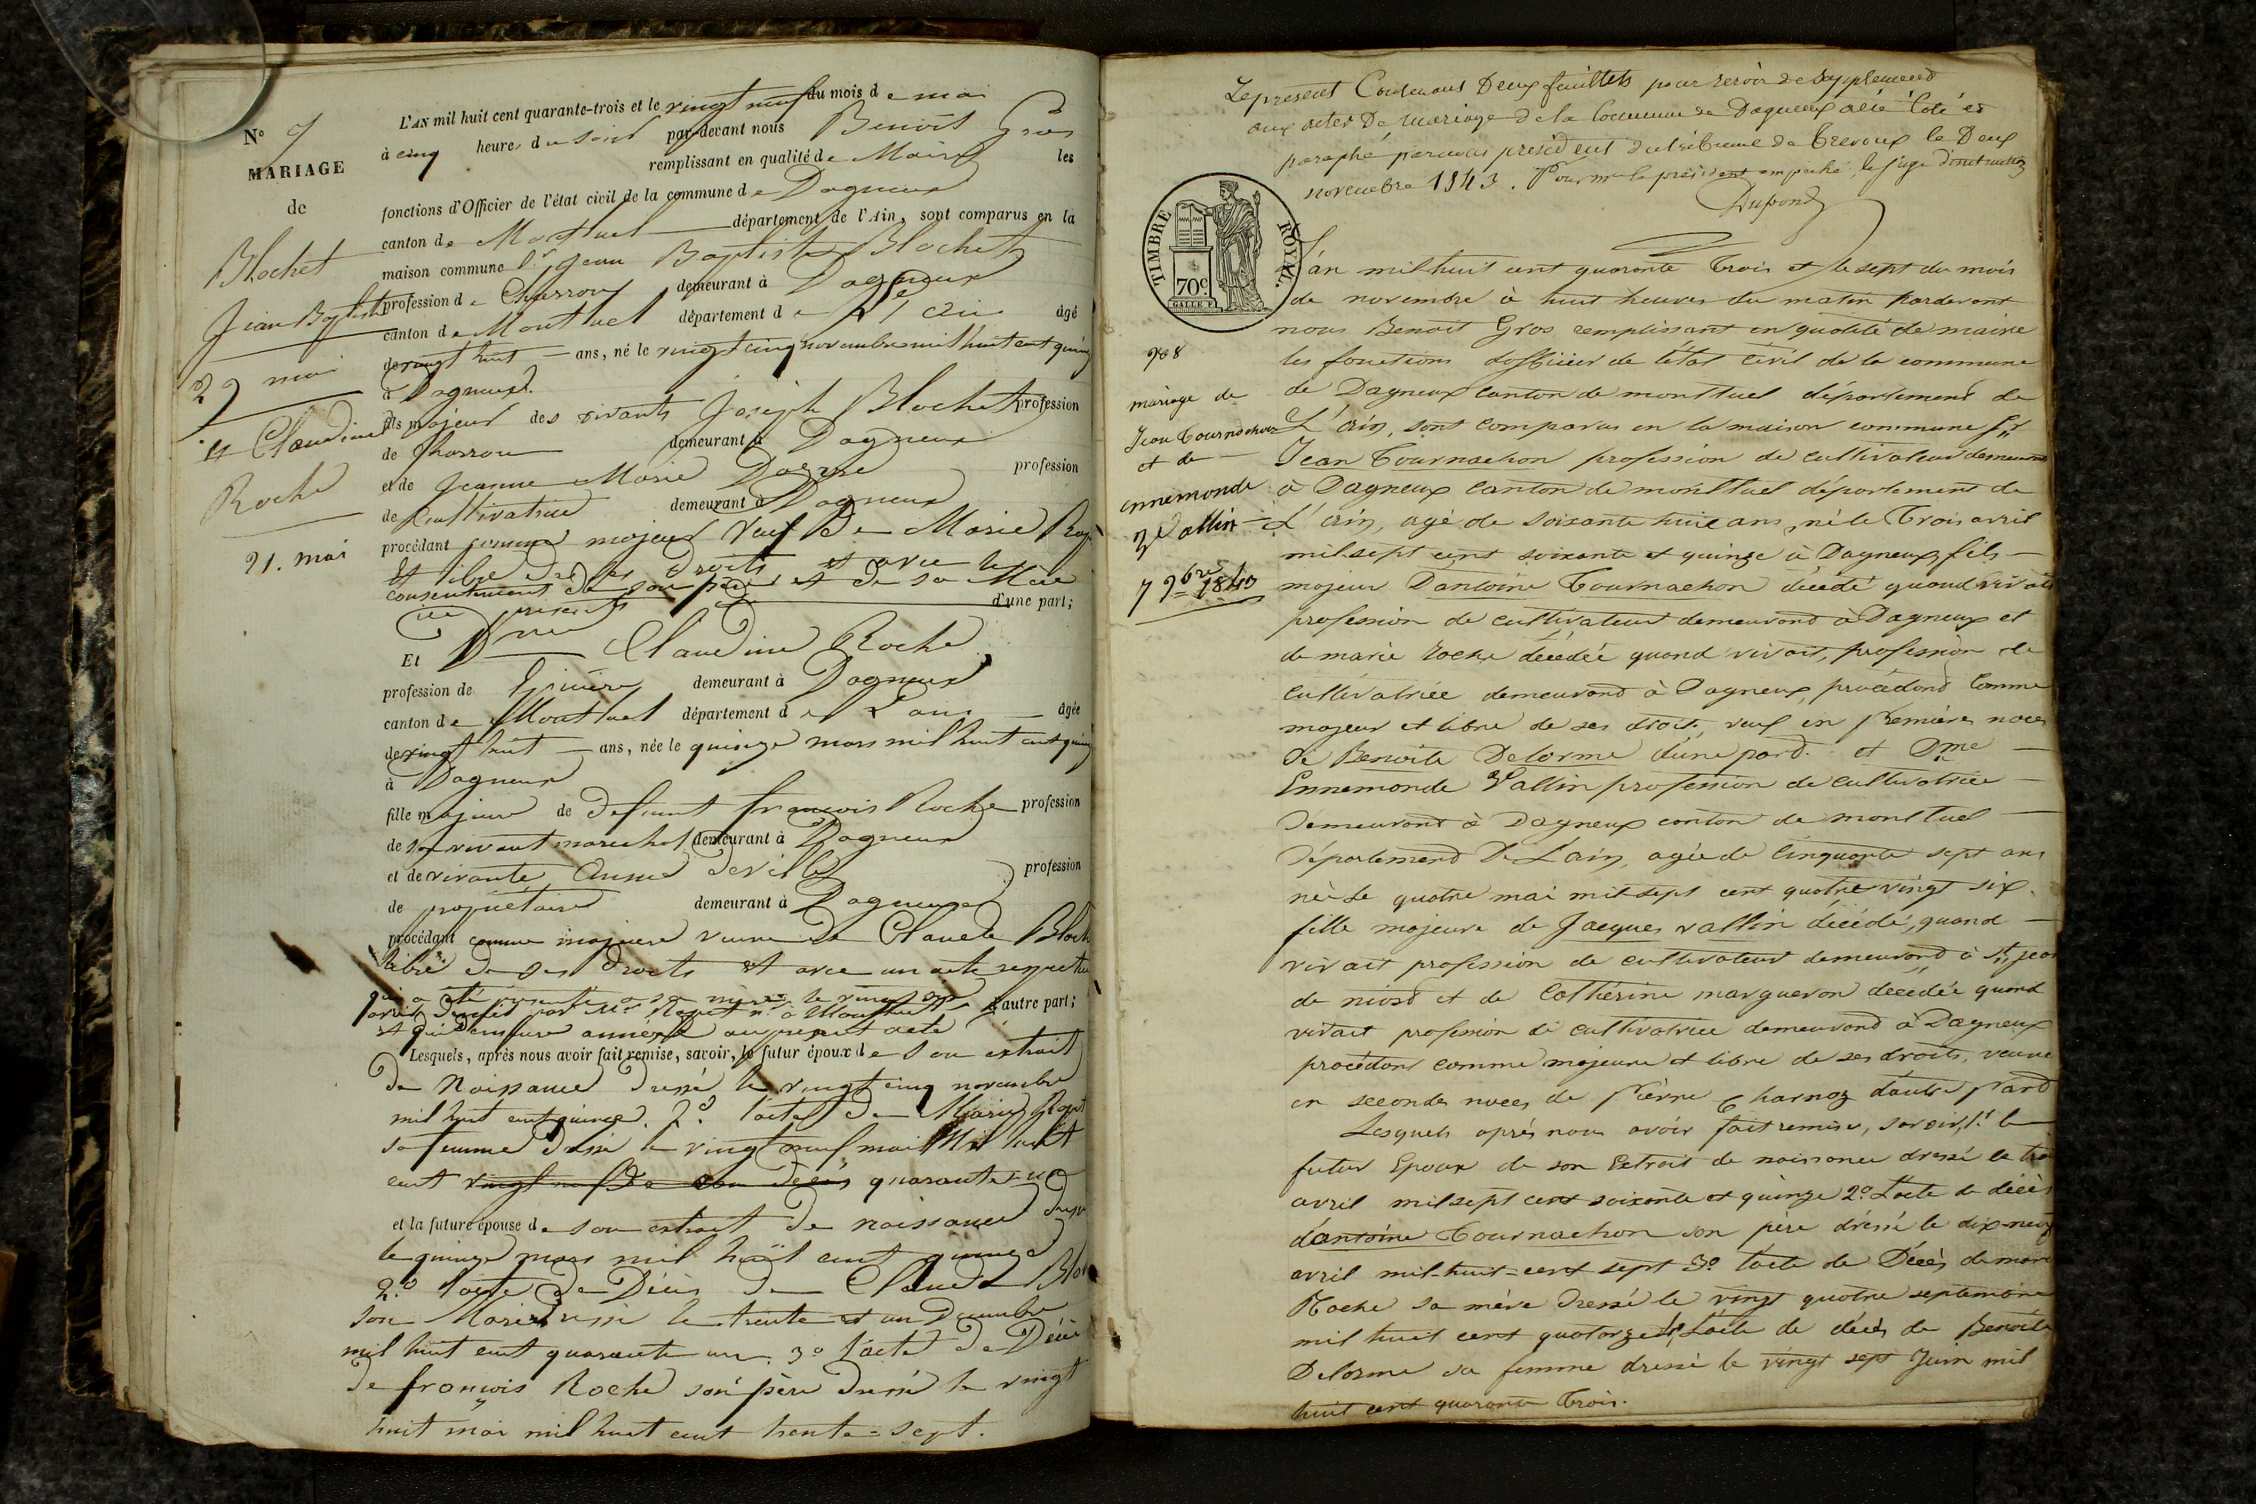 N° 7
MARIAGE
de
Blochet
Jean Baptiste
29 mai
et Claudine
Roche
21. mai
L'AN mil huit cent quarante-trois et le vingt neuf du mois de mai
à cinq heures du soir par-devant nous Benoît Gros
remplissant en qualité de Maire les
fonctions d'Officier de l'état civil de la commune de Dagneux
canton de Montluel département de l'Ain, sont comparus en la
maison commune Sr Jean Baptiste Blochet
profession de Charron demeurant à Dagneux
canton de Montluel département de l'ain âgé
de vingt huit ans, né le vingt cinq novembre mil huit cent quinze
à Dagneux
fils majeur des vivants Joseph Blochet profession
de Charron demeurant à Dagneux
et de Jeanne Marie profession
de Cultivatrice demeurant à Dagneux
procédant comme majeur Veuf de Marie
et libre de ses droits et avec le
consentement de son père et de sa Mère
ici présents d'une part;
Et Claudine Roche
profession de demeurant à Dagneux
canton de Montluel département de l'ain âgée
de vingt huit ans, née le quinze mars mil huit cent quinze
à Dagneux
fille majeure de defunt françois Roche profession
de son vivant marechal demeurant à Dagneux
et de vivante Anne deville profession
de propriétaire demeurant à Dagneux
procédant comme majeure veuve de Claude Bloch
libre de ses droits et avec un acte respectueux
qui a été presenté a sa mère le vingt
avril dressé par Me à Montluel d'autre part;
et qui demeure annexé au present acte
Lesquels, après nous avoir fait remise, savoir, le futur époux de son extrait
de Naissance dressé le vingt cinq novembre
mil huit cent quinze. 2° l'acte de Marie
sa femme dressé le vingt neuf mai Mil huit
cent quarante un
et la future épouse de son extrait de naissance dressé
le quinze mars mil huit cent quinze
2° l'acte de Décès de Claude Blo
son Mari dressé le trente et un Decembre
mil huit cent quarante un. 3° l'acte de Décès
de françois Roche son père dressé le vingt
huit mai mil huit cent trente = sept.
Le present Contenant Deux feuillets pour servir de Supplement
aux actes De mariage de la Commune de Dagneux a été Coté et
paraphé par nous président du tribunal de Trevoux le Deux
novembre 1843. Pour Mr le président empêché, le juge d'instruction
Dupond
TIMBRE ROYAL.
70c
n° 8
mariage de
Jean Tournachon
et de
ennemonde
Vallin
7 9bre 1843
L'an mil huit cent quarante Trois et le sept du mois
de novembre à huit heures du matin pardevant
nous Benoit Gros remplissant en qualité de maire
les fonctions d'officier de l'état civil de la commune
de Dagneux canton de montluel département de
L'ain, sont comparus en la maison commune Sr
Jean Tournachon profession de cultivateur demeurant
à Dagneux canton de montluel département de
L'ain, agé de soixante huit ans, né le Trois avril
mil sept cent soixante et quinze à Dagneux fils
majeur D'antoine Tournachon décédé quand vivait
profession de cultivateur demeurand à Dagneux et
de marie Roche décédée quand vivait, profession de
cultivatrice demeurand à Dagneux, procédand comme
majeur et libre de ses droits, veuf en Premières noces
de Benoite Delorme d'une pard. et Dme
Ennemonde Vallin profession de cultivatrice
demeurand à Dagneux canton de montluel
département De L'ain, agée de Cinquante sept ans
née le quatre mai mil sept cent quatre vingt six.
fille majeure de Jacques vallin décédé, quand
vivait profession de cultivateur demeurand à St jean
de niost et de Cathérine margueron décédée quand
vivait profession de cultivatrice demeurand à Dagneux
procédant comme majeure et libre de ses droits, veuve
en secondes noces de Pierre Charnoz d'autre Pard
Lesquels après nous avoir fait remise, savoir, 1° le
futur Epoux de son Extrait de naissance dressé le trois
avril mil sept cent soixante et quinze 2° L'acte de décès
d'antoine Tournachon son père dréssé le dix-neuf
avril mil-huit-cent sept 3° l'acte de Décès de marie
Roche sa mère Dressé le vingt quatre septembre
mil huit cent quatorze 4° L'acte de décès de Benoite
Delorme sa femme dressé le vingt sept Juin mil
huit cent quarante Trois.